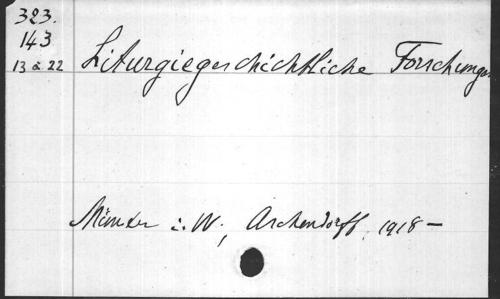 323.
143
13 à 22
Liturgiegeschichtliche Forschungen
Münster i. W., Aschendorff, 1918 –